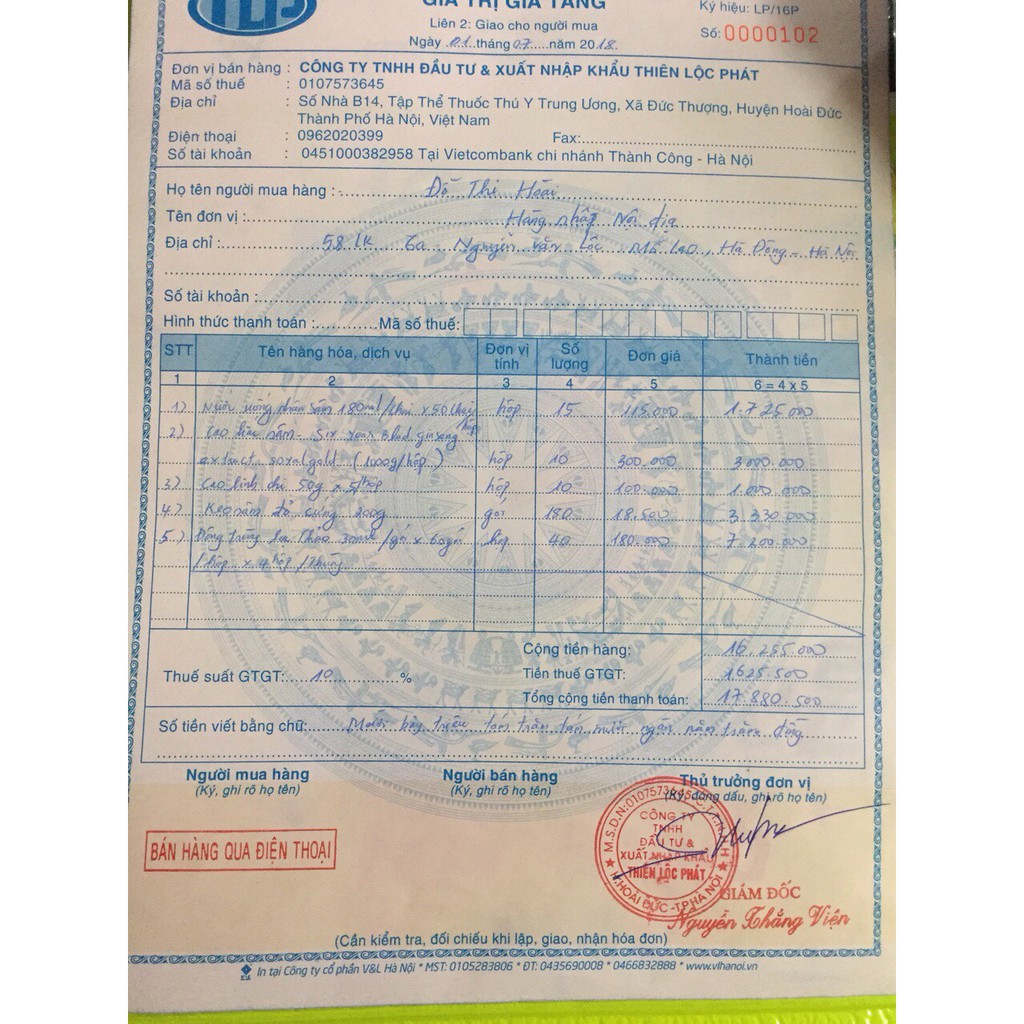 TLP
GIÁ TRỊ GIA TĂNG
Ký hiệu: LP/16P
Liên 2: Giao cho người mua
Số: 0000102
Ngày 01 tháng 07 năm 2018
Đơn vị bán hàng : CÔNG TY TNHH ĐẦU TƯ & XUẤT NHẬP KHẨU THIÊN LỘC PHÁT
Mã số thuế : 0107573645
Địa chỉ : Số Nhà B14, Tập Thể Thuốc Thú Y Trung Ương, Xã Đức Thượng, Huyện Hoài Đức
Thành Phố Hà Nội, Việt Nam
Điện thoại : 0962020399 Fax:
Số tài khoản : 0451000382958 Tại Vietcombank chi nhánh Thành Công - Hà Nội
Họ tên người mua hàng : Đỗ Thị Hoài
Tên đơn vị : Hàng nhập Nội địa
Địa chỉ : 58 LK 6a Nguyễn văn Lộc Mỗ Lao, Hà Đông - Hà Nội
Số tài khoản :
Hình thức thanh toán : Mã số thuế:
STT Tên hàng hóa, dịch vụ Đơn vị tính Số lượng Đơn giá Thành tiền
1 2 3 4 5 6 = 4 x 5
1) Nước uống nhân sâm 180ml/ x 50 hộp 15 115.000 1.725.000
2) Cao hắc sâm - Six year ginseng
extract royal gold (1000g/hộp) hộp 10 300.000 3.000.000
3) Cao linh chi 50g x 5 hộp 10 100.000 1.000.000
4) Kẹo sâm đỏ cứng 200g gói 180 18.500 3.330.000
5) Đông trùng hạ thảo 30ml/gói x 60gói hộp 40 180.000 7.200.000
/hộp x 4 hộp/thùng
Cộng tiền hàng: 16.255.000
Thuế suất GTGT: 10 % Tiền thuế GTGT: 1625.500
Tổng cộng tiền thanh toán: 17.880.500
Số tiền viết bằng chữ: Mười bảy triệu tám trăm tám mươi ngàn năm trăm đồng
Người mua hàng Người bán hàng Thủ trưởng đơn vị
(Ký, ghi rõ họ tên) (Ký, ghi rõ họ tên) (Ký, đóng dấu, ghi rõ họ tên)
BÁN HÀNG QUA ĐIỆN THOẠI
M.S.D.N:0107573645-C.T.T.N.H.H
CÔNG TY
TNHH
ĐẦU TƯ &
XUẤT NHẬP KHẨU
THIÊN LỘC PHÁT
H.HOÀI ĐỨC - TP.HÀ NỘI
GIÁM ĐỐC
Nguyễn Thắng Viện
(Cần kiểm tra, đối chiếu khi lập, giao, nhận hóa đơn)
In tại Công ty cổ phần V&L Hà Nội * MST: 0105283806 * ĐT: 0435690008 * 0466832888 * www.vlhanoi.vn